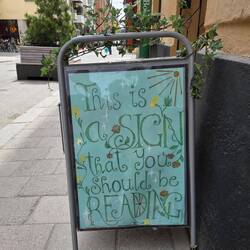 This is
a SIGN
that you
should be
READING